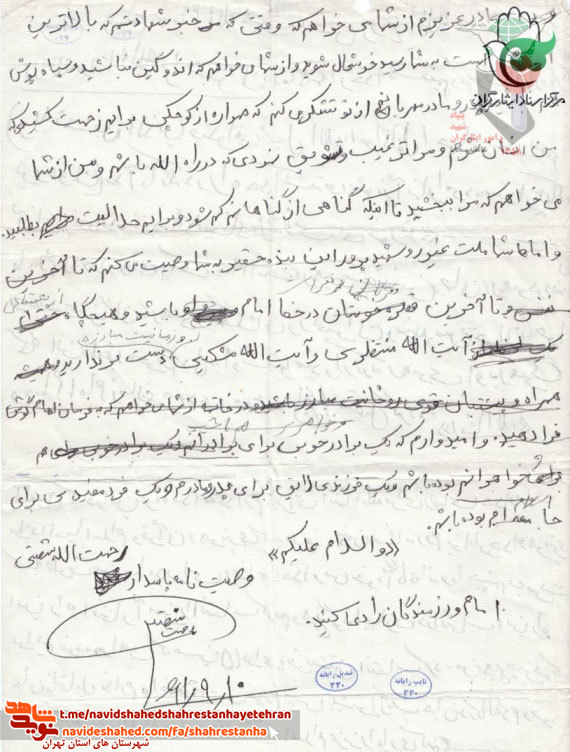 مادر عزیزم از شما می خواهم که وقتی که خبر شهادتم که بالاترین
است به شما رسید خوشحال شوید و از شما می خواهم که اندوگین نباشید و سیاه نپوش
مرکز اسناد ایثارگران
بنیاد شهید و امور ایثارگران
و مادر مهربانم از تو تشکر می کنم که همواره از کوچکی برایم زحمت کشیدی که
من انسان شوم و مرا ترغیب و تشویق نمودی که در راه الله باشم و من از شما
می خواهم که مرا ببخشید تا اینکه گناهی از گناهانم کم شود و برایم حلالیت بطلبید.
و اما ای شما ملت غیور و شهید پرور این بنده حقیر به شما وصیت می کنم که تا آخرین
نفس و تا آخرین قطره خونتان در خط امام باشید و هیچگاه
از آیت الله منتظری و آیت الله مشکینی دست برندارید
همراه و پشتیبان روحانیت مبارز باشید و از شما می خواهم که به فرمان امام گوش
فرا دهید. و امیدوارم که یک برادر خوب برای برادرانم
خواهرانم بوده باشم و یک فرزندی لایق برای پدر و مادرم و یک فرد مفیدی برای
جامعه ام بوده باشم.
«والسلام علیکم»
رحمت الله
وصیت نامه پاسدار
امام و رزمندگان را دعا کنید.
تبدیل رایانه
۳۳۰
تایپ رایانه
۴۴۰
t.me/navidshahedshahrestanhayetehran
navideshahed.com/fa/shahrestanha
نوید شاهد
شهرستان های استان تهران